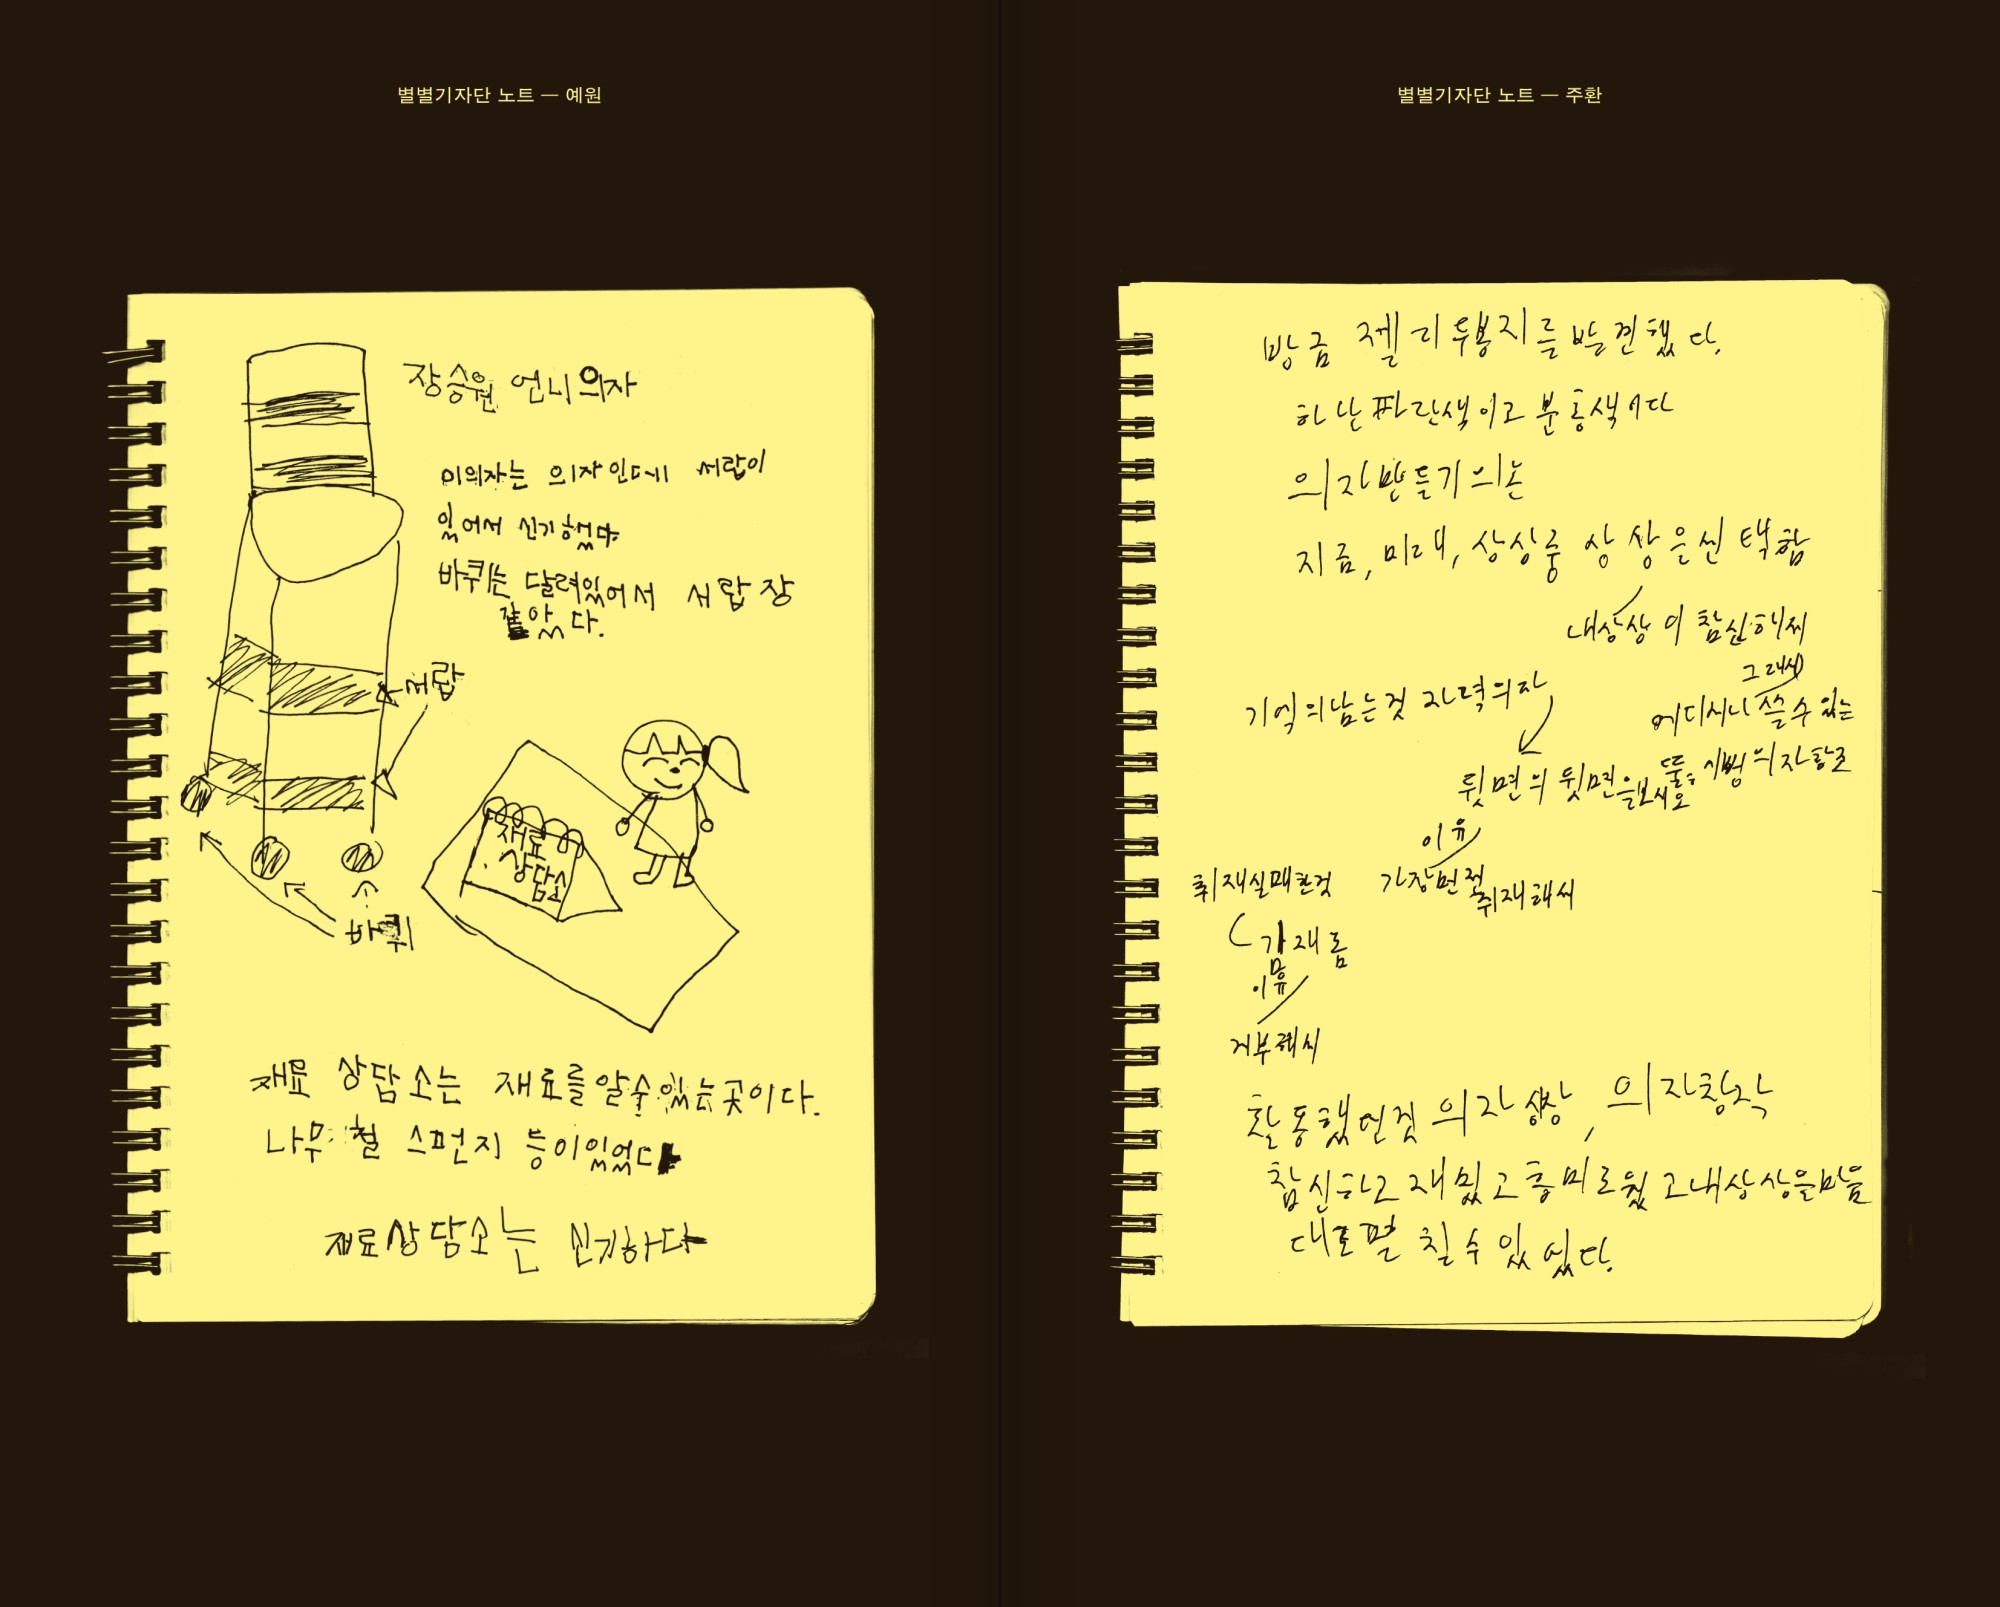 별별기자단 노트 — 예원
장승원 언니의자
이의자는 의자인데 서랍이
있어서 신기했다
바퀴는 달려있어서 서랍장
같았다.
서랍
바퀴
재료
상담소
재료 상담소는 재료를알수있는곳이다.
나무 철 스펀지 등이있었다
재료상담소는 신기하다
별별기자단 노트 — 주환
방금 젤리두봉지를 발견했다.
하난파란색이고 분홍색이다
의자만들기의논
지금, 미래, 상상중 상상을선택함
내상상이 참신해찌
그래서
기억의남는것 자력의자
어디서나 쓸수있는
뒷면의 뒷면을보시오
의자창조
이유
취재실패한것
가장먼저
취재해씨
이유
거부해씨
활동했던것 의자상상, 의자창작
참신하고 재밌고 흥미로웠고내상상을마음
대로펼칠수있었다.